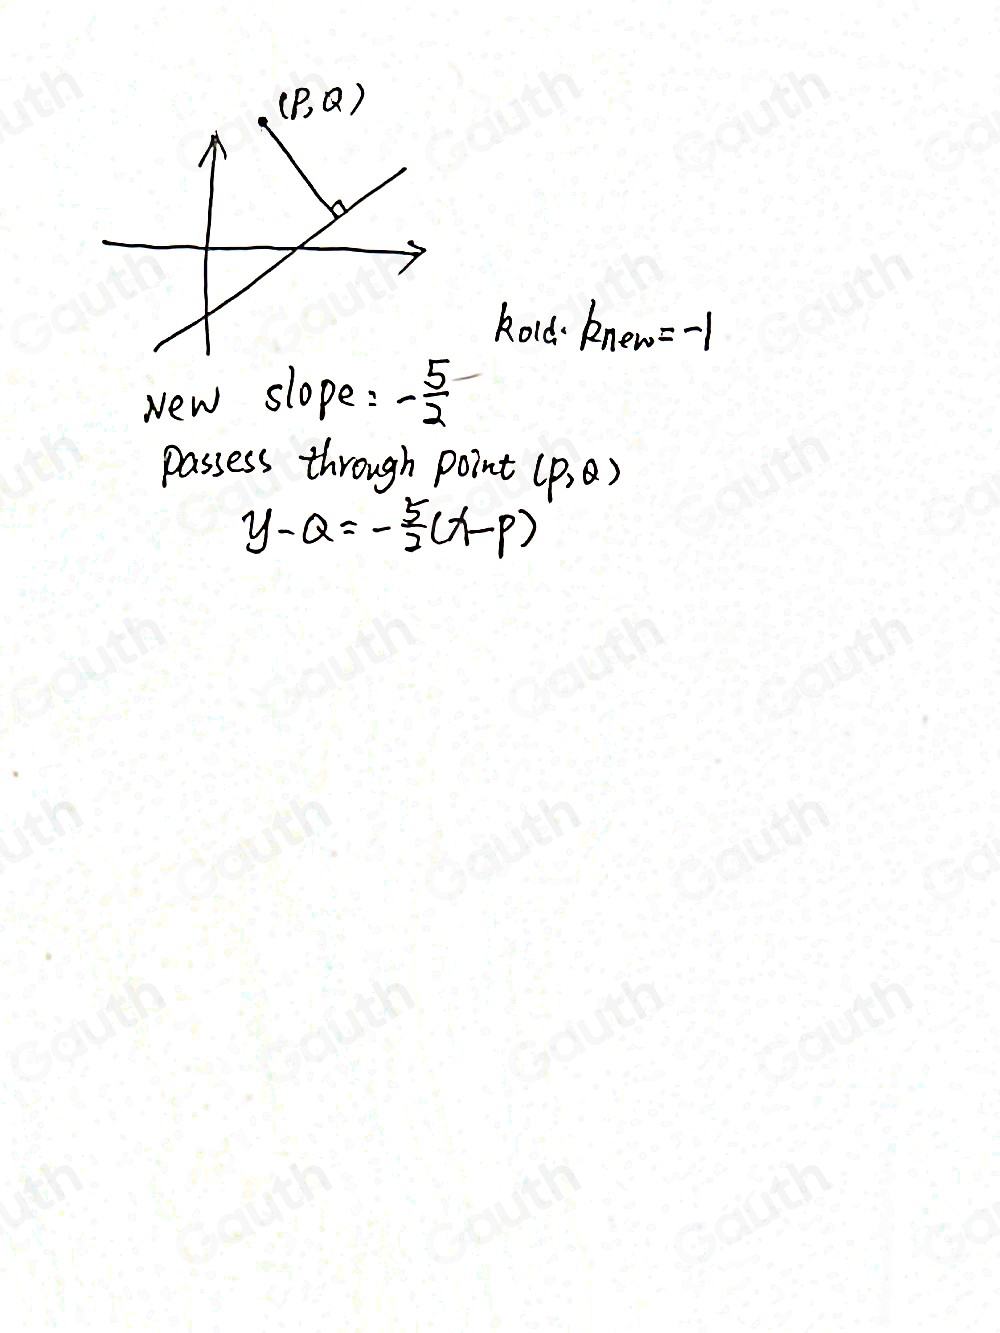 (P, Q)
kold · knew = -1
New slope: -5/2
Passess through point (P, Q)
y - Q = -5/2(x - P)